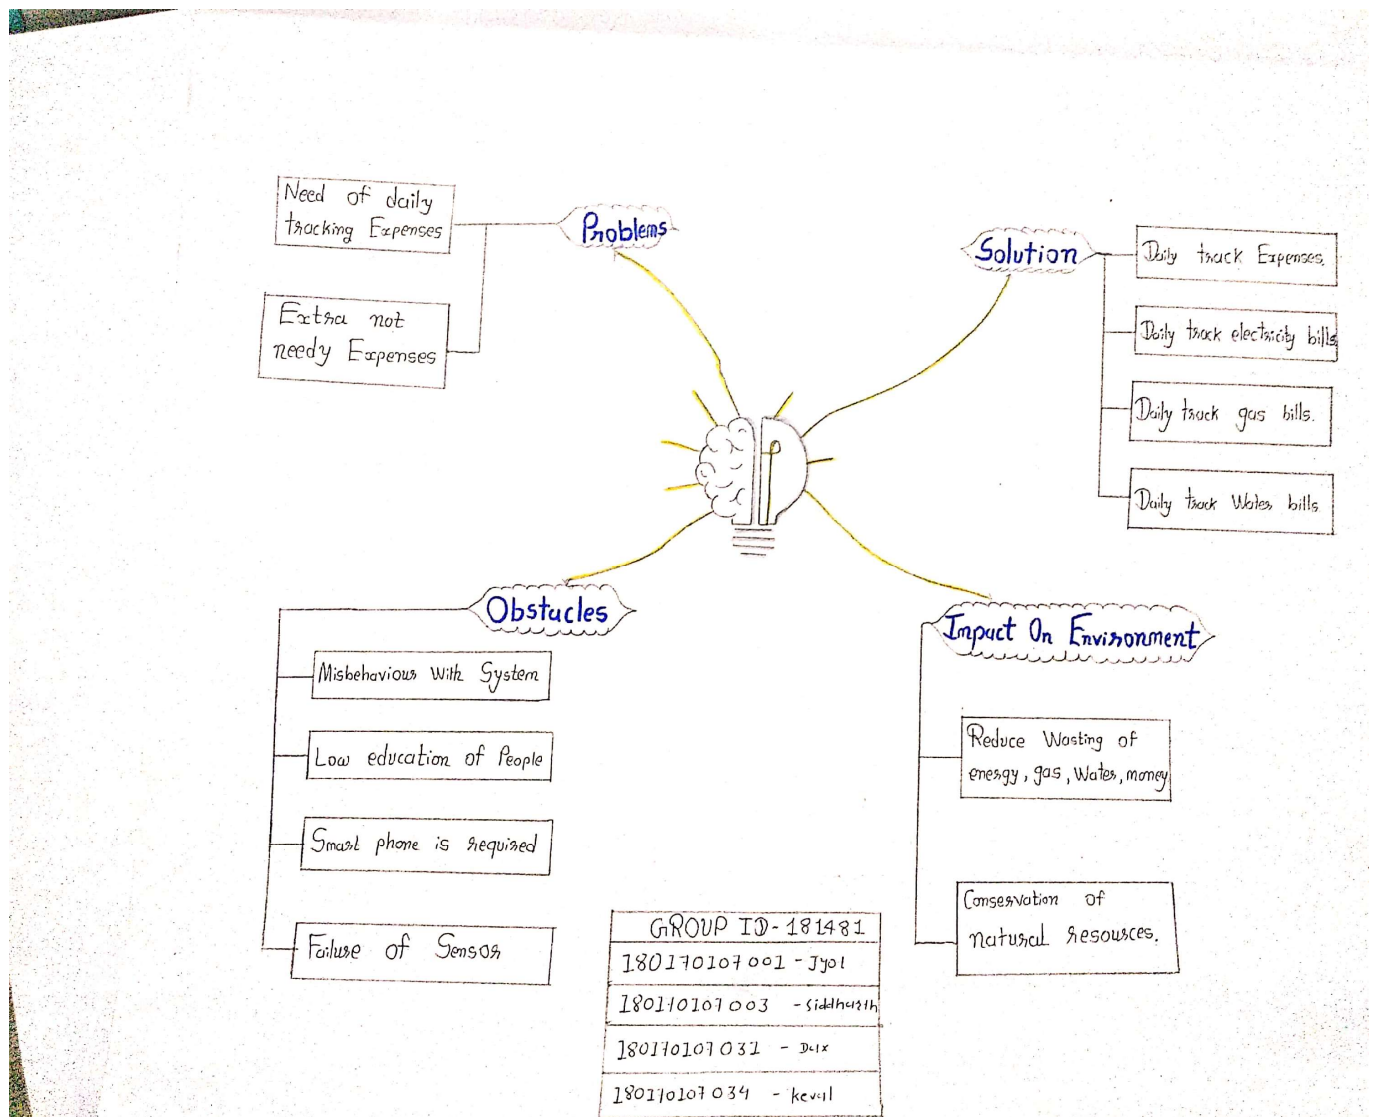 Problems
Need of daily
tracking Expenses
Extra not
needy Expenses
Solution
Daily track Expenses.
Daily track electricity bills
Daily track gas bills.
Daily track Water bills
Obstacles
Misbehaviour With System
Low education of People
Smart phone is required
Failure of Sensor
Impact On Environment
Reduce Wasting of
energy, gas, Water, money
Conservation of
natural resources.
GROUP ID-181481
180170107001 - Jyot
180170107003 - Siddharth
180170107031 -
180170107034 - keval